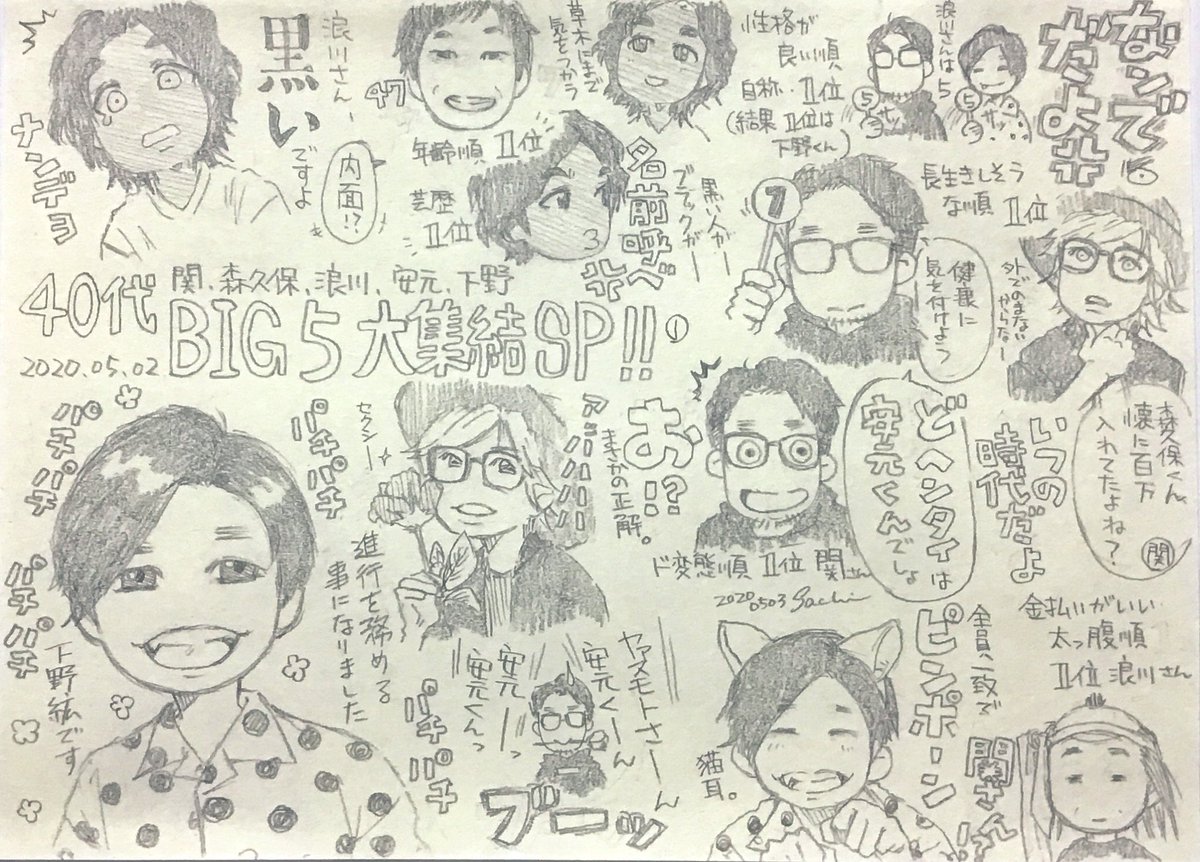 なンで
だよ!!
浪川さんは5
⑤
サッ
⑤
サッ
性格が
良い順
自称・1位
(結果1位は
下野くん)
草木にまで
気をつかう
47
年齢順 1位
芸歴
1位
浪川さん
黒い
ですよ
内面!?
ナンデョ
名前呼べ!!
黒い人がー
ブラックがー
3
7
長生きしそう
な順 1位
健康に
気を付けよう
外でのまない
からなー
40代
関、森久保、浪川、安元、下野
BIG5 大集結SP!!
①
2020.05.02
森久保くん
懐に百万
入れてたよね?
関
いつの
時代だよ
どヘンタイは
安元くんでしょ
お!?
まさかの正解。
アハハハハハ
セクシー
ド変態順 1位 関さん
2020
0503 Sachi
金払いがいい
太っ腹順
1位 浪川さん
全員一致で
ピンポーン
関さんは
猫耳。
ヤスモトさーーん
安元くーーん
安元ーーっ
安元くんっ
ブーーッ
進行を務める
事になりました
パチパチ
パチパチ
パチパチ
パチパチ
パチパチ
下野紘です